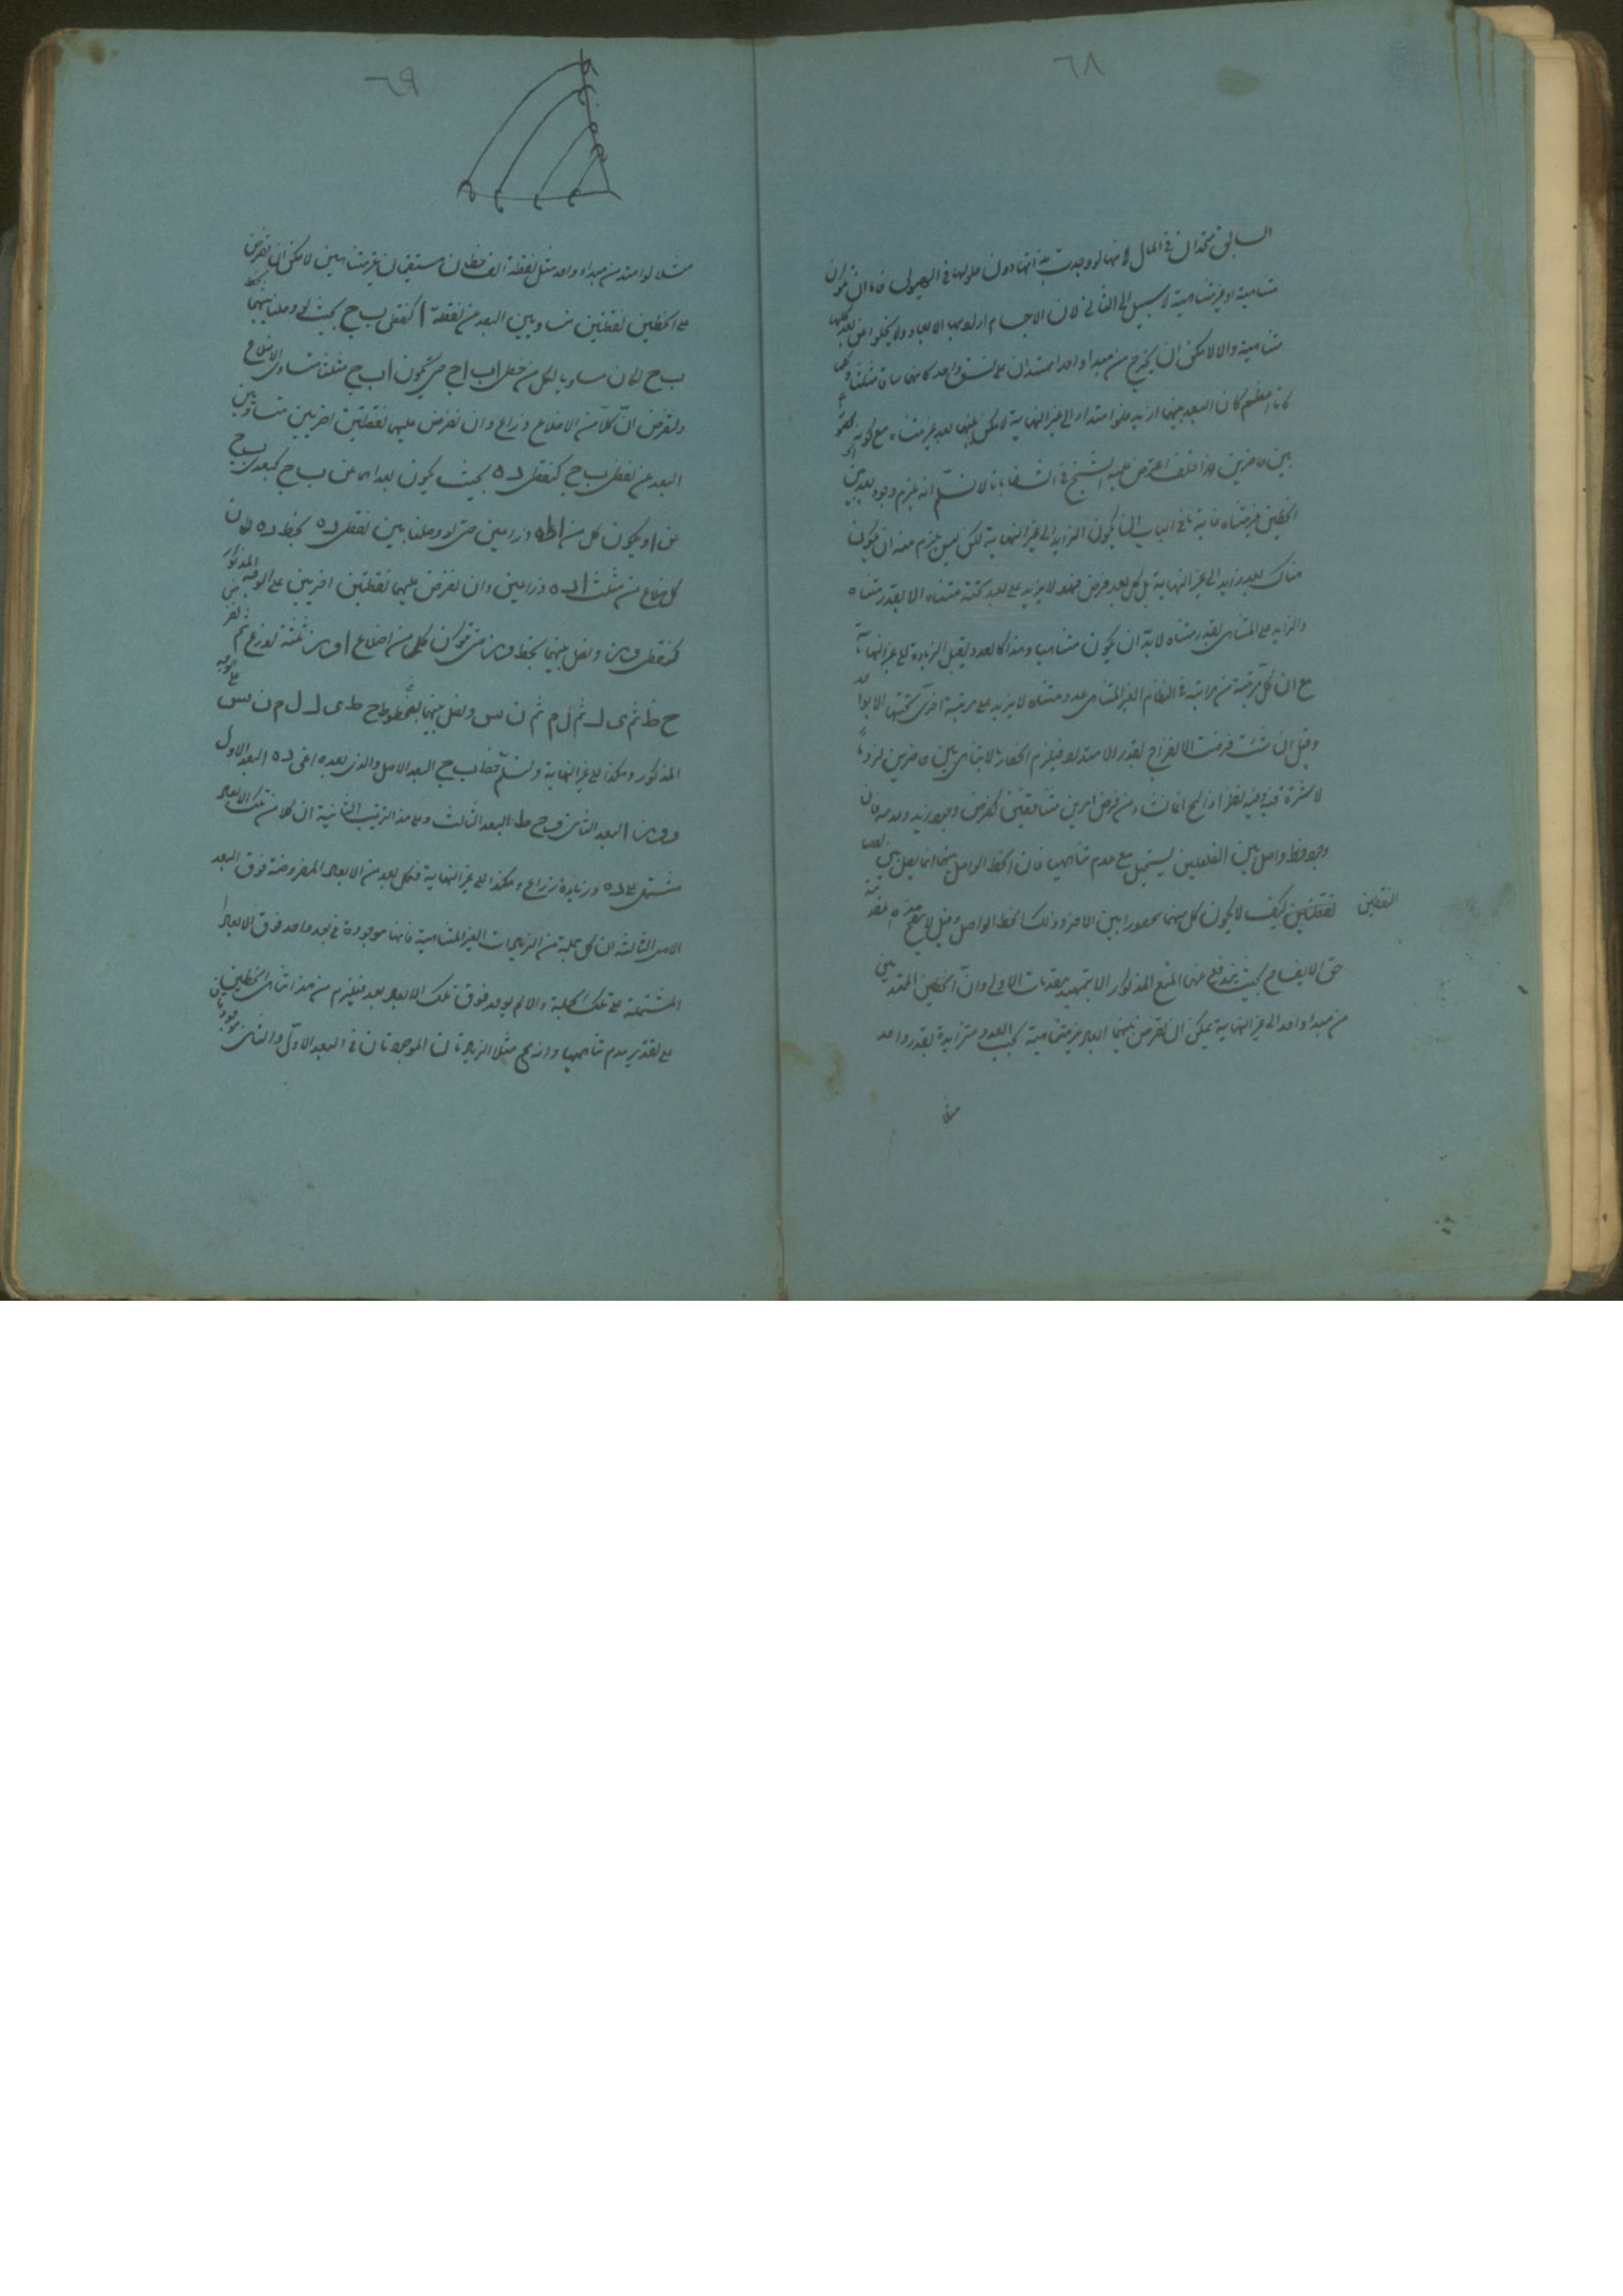 ٦٨
السابق متحدان في المال لانها لو وجدت بذاتها دون حلولها في الهيولى فاما ان تكون
متناهية او غير متناهية لا سبيل الى الثاني لان الاجسام
متناهية والا لامكن ان يخرج من مبدأ واحد امتدادان على نسق واحد كانهما ساقا مثلث وكلما
كانا اعظم كان البعد بينهما ازيد فلو امتدا الى غير النهاية لامكن بينهما بعد غير متناه مع كونه محصورا
بين حاصرين هذا خلف اعترض عليه الشيخ في الشفاء بانا لا نسلم انه يلزم وجود بعد بين
الخطين غير متناه غاية ما في الباب ان يكون التزايد الى غير النهاية لكن ليس يلزم منه ان يكون
هناك بعد زايد الى غير النهاية بل كل بعد فرض فهو لا يزايد على بعد تحته متناه الا بقدر متناه
والزايد على المتناهي بقدر متناه لا بد ان يكون متناهيا وهذا كالعدد يقبل الزيادة الى غير النهاية
مع ان كل مرتبة من مراتبه في النظام الغير المتناهي عدد متناه لا يزيد على مرتبة اخرى تحتها الا بواحد
وقيل ان شئت فرضت الانفراج بقدر الامتداد فيلزم انحصار ما لا يتناهى بين حاصرين لزوما
لا سترة فيه وفيه نظر اذ المحال انما نشأ من فرض امرين متناقضين كفرض وجود زيد وعدمه فان
وجود خط واصل بين الضلعين يستحيل مع عدم تناهيهما فان الخط الواصل بينهما انما يصل بين
النقطتين نقطتين كيف لا يكون كل منهما محصورا بين الاخر وذلك الخط الواصل وقيل لا يتضح
حق الايضاح بحيث يندفع عنها المنع المذكور الا بتمهيد مقدمات الاولى وان الخطين الممتدين
من مبدأ واحد الى غير النهاية يمكن ان نفرض بينهما ابعاد غير متناهية بحسب العدد متزايدة بقدر واحد
مثلا
٦٩
مثلا لو امتد من مبداء واحد مثل نقطة الف خطان مستقيمان غير متناهيين لامكن ان نفرض
على الخطين نقطتين متساويتين البعد عن نقطة ا كنقطتي ب ج بحيث لو وصلنا بينهما بخط
ب ج لكان مساويا لكل من خطي اب اج حتى يكون ا ب ج مثلثا متساوي الاضلاع
ولنفرض ان كلا من الاضلاع ذراع وان نفرض عليهما نقطتين اخريين متساويتين
البعد عن نقطتي ب ج كنقطتي د ه بحيث يكون بعداهما عن ب ج كبعدي ب ج
عن ا ويكون كل من اد اه ذراعين حتى لو وصلنا بين نقطتي د ه بخط د ه لكان
كل ضلع من مثلث ا د ه ذراعين وان نفرض عليهما نقطتين اخريين على الوجه المذكور
كنقطتي و ز ونصل بينهما بخط و ز حتى تكون كل من اضلاع ا و ز ثلثة اذرع ثم نفرض
ح ط ثم ى ك ثم ل م ثم ن س ونصل بينهما بخطوط ح ط ى ك ل م ن س على الوجه
المذكور وهكذا الى غير النهاية ولنسم خط ب ج البعد الاصل والذي بعده اعني د ه البعد الاول
و و ز البعد الثاني و ح ط البعد الثالث وعلى هذا الترتيب الثانية ان كلا من تلك الابعاد
مشتمل على وزيادة ذراع وهكذا الى غير النهاية فكل بعد من الابعاد المفروضة فوق البعد
الاصل الثالثة ان كل جملة من الزيادات الغير المتناهية فانها موجودة في بعد واحد فوق الابعاد
المشتملة على تلك الجملة والا لم يوجد فوق تلك الابعاد بعد فيلزم من هذا تناهي الخطين
على تقدير عدم تناهيهما وانه مح مثلا الزيادتان الموجودتان في البعد الاول والثاني